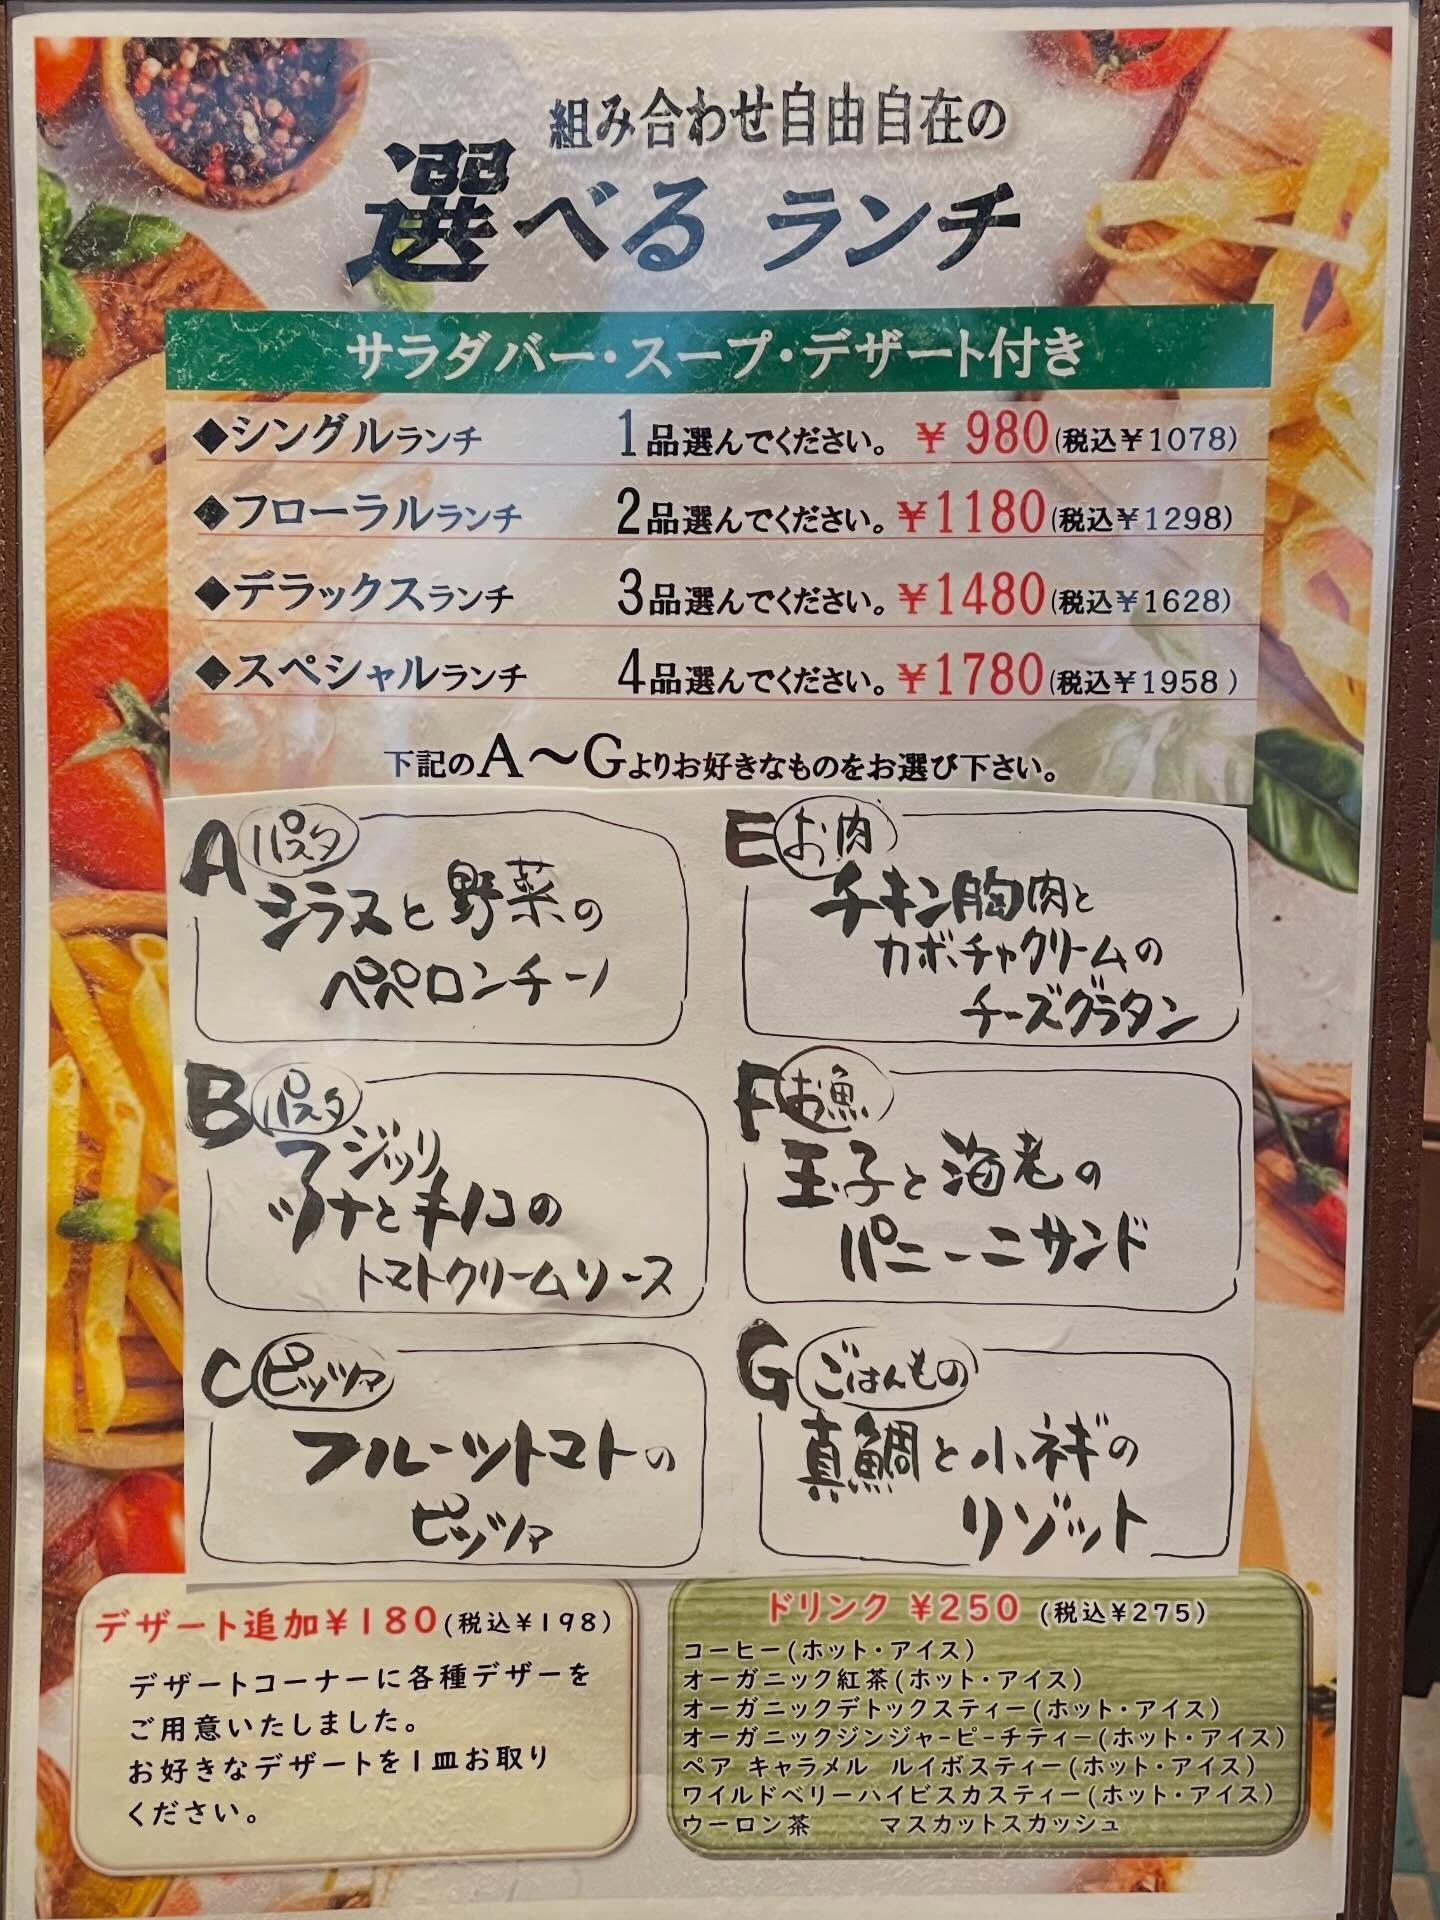 組み合わせ自由自在の
選べる ランチ
サラダバー・スープ・デザート付き
◆シングルランチ 1品選んでください。 ¥ 980(税込¥1078)
◆フローラルランチ 2品選んでください。 ¥1180(税込¥1298)
◆デラックスランチ 3品選んでください。 ¥1480(税込¥1628)
◆スペシャルランチ 4品選んでください。 ¥1780(税込¥1958 )
下記のA〜Gよりお好きなものをお選び下さい。
A パスタ
シラスと野菜の
ペペロンチーノ
B パスタ
フジッリ
ツナとキノコの
トマトクリームソース
C ピッツァ
フルーツトマトの
ピッツァ
E お肉
チキン胸肉と
カボチャクリームの
チーズグラタン
F お魚
玉子と海老の
パニーニサンド
G ごはんもの
真鯛と小ネギの
リゾット
デザート追加¥180(税込¥198)
デザートコーナーに各種デザーを
ご用意いたしました。
お好きなデザートを1皿お取り
ください。
ドリンク ¥250 (税込¥275)
コーヒー(ホット・アイス)
オーガニック紅茶(ホット・アイス)
オーガニックデトックスティー(ホット・アイス)
オーガニックジンジャーピーチティー(ホット・アイス)
ペア キャラメル ルイボスティー(ホット・アイス)
ワイルドベリーハイビスカスティー(ホット・アイス)
ウーロン茶 マスカットスカッシュ